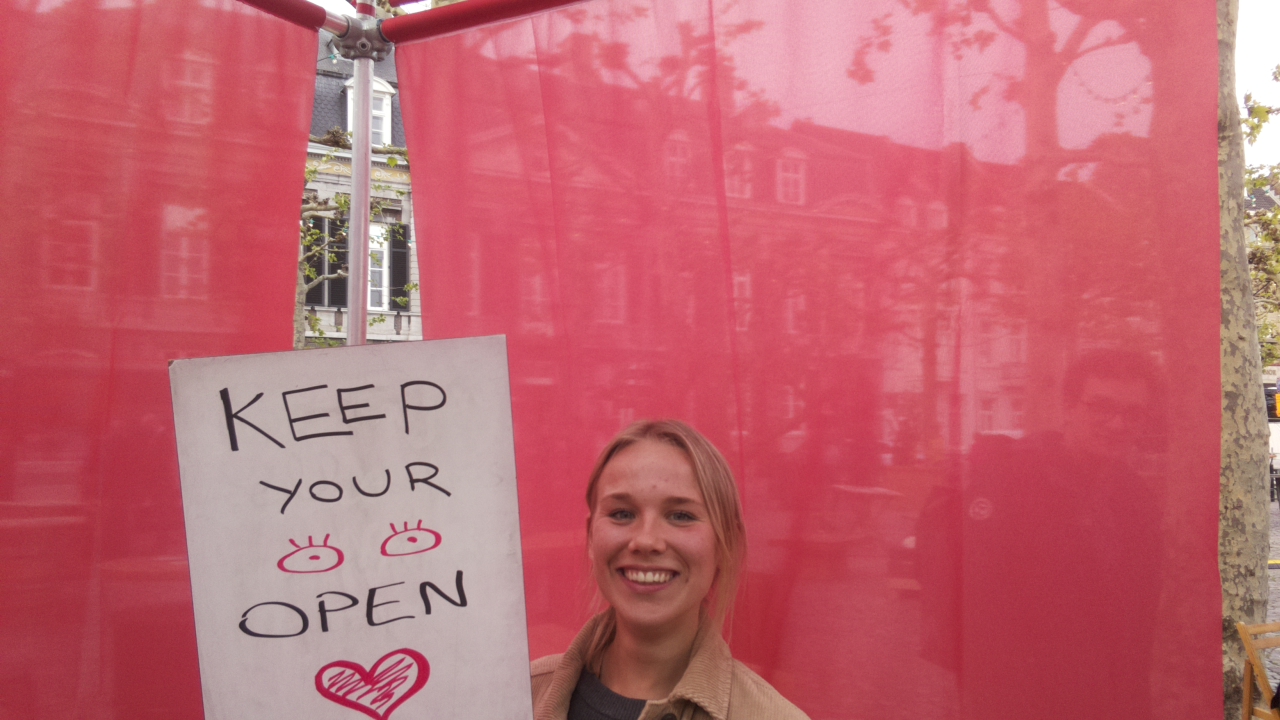 KEEP
YOUR
OPEN